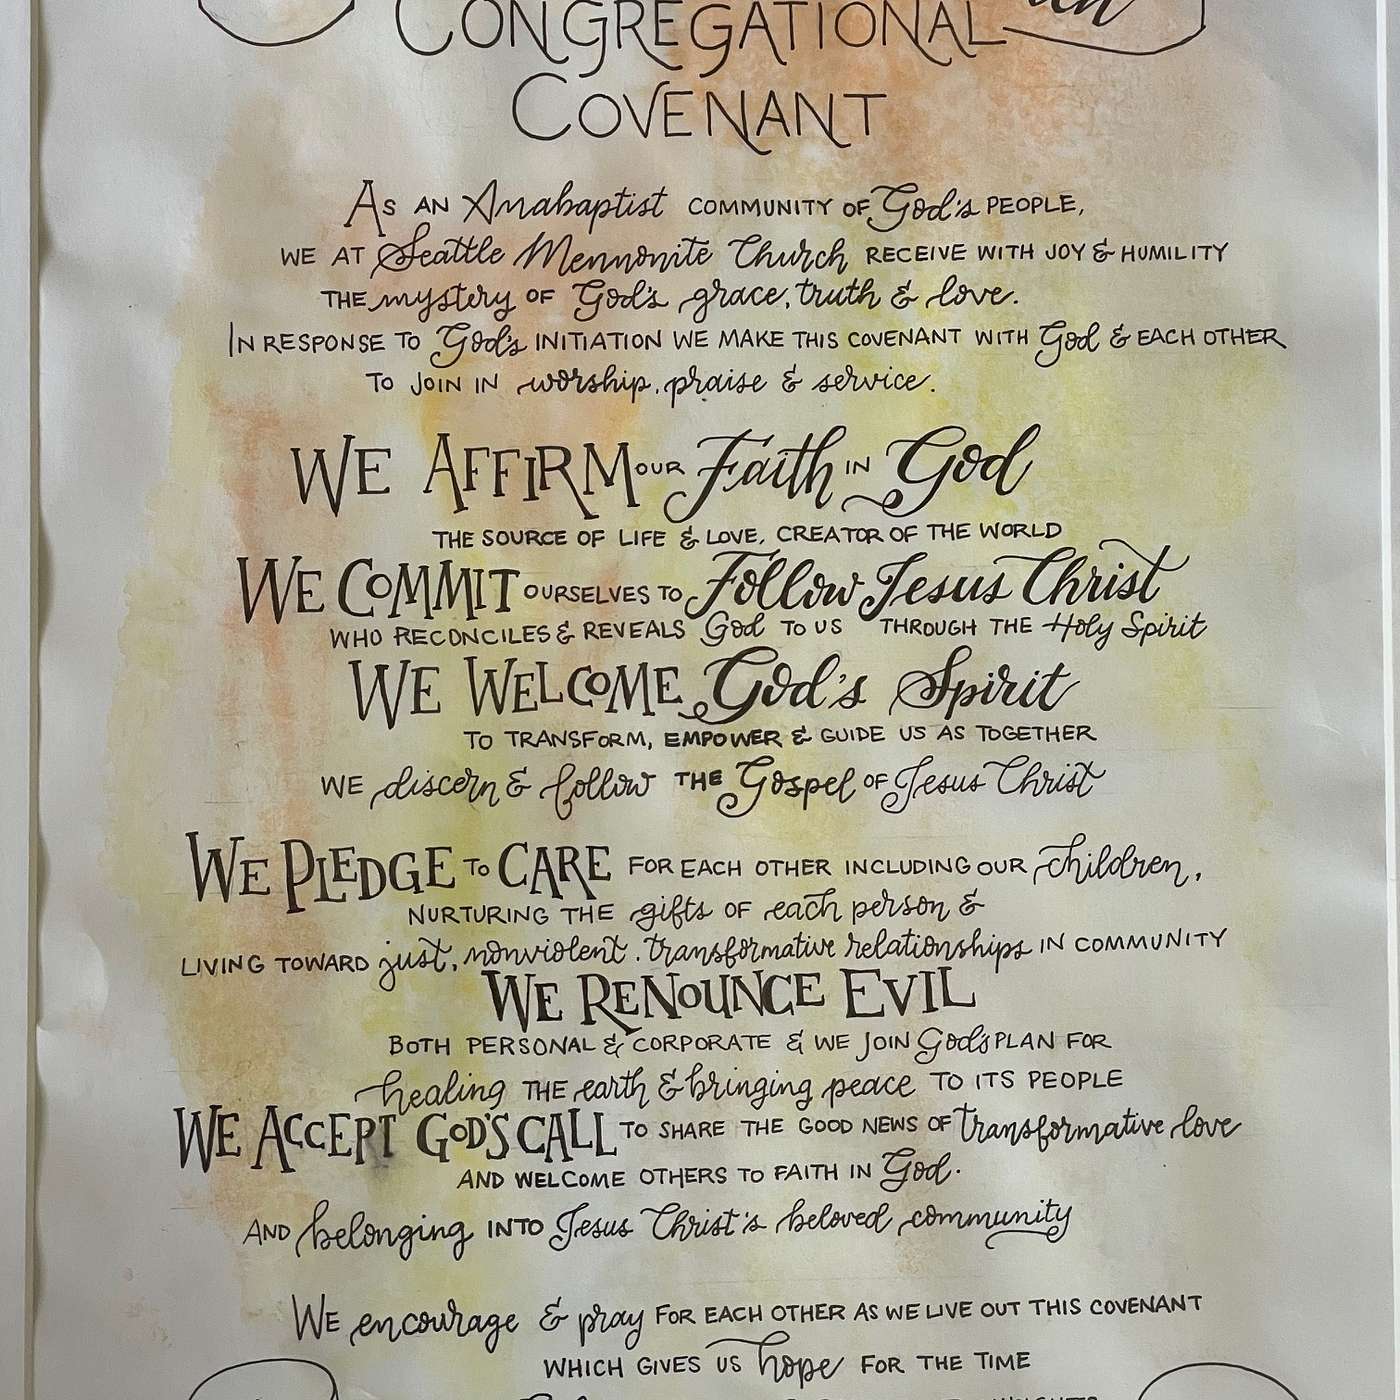 CONGREGATIONAL
COVENANT
AS AN Anabaptist COMMUNITY OF God's PEOPLE,
WE AT Seattle Mennonite Church RECEIVE WITH JOY & HUMILITY
THE mystery OF God's grace, truth & love.
IN RESPONSE TO God's INITIATION WE MAKE THIS COVENANT WITH God & EACH OTHER
TO JOIN IN worship, praise & service.
WE AFFIRM OUR Faith IN God
THE SOURCE OF LIFE & LOVE, CREATOR OF THE WORLD
WE COMMIT OURSELVES TO Follow Jesus Christ
WHO RECONCILES & REVEALS God TO US THROUGH THE Holy Spirit
WE WELCOME God's Spirit
TO TRANSFORM, EMPOWER & GUIDE US AS TOGETHER
WE discern & follow THE Gospel OF Jesus Christ
WE PLEDGE TO CARE FOR EACH OTHER INCLUDING OUR children,
NURTURING THE gifts OF each person &
LIVING TOWARD just, nonviolent, transformative relationships IN COMMUNITY
WE RENOUNCE EVIL
BOTH PERSONAL & CORPORATE & WE JOIN God's PLAN FOR
healing THE earth & bringing peace TO ITS PEOPLE
WE ACCEPT GOD'S CALL TO SHARE THE GOOD NEWS OF transformative love
AND WELCOME OTHERS TO FAITH IN God.
AND belonging INTO Jesus Christ's beloved community
WE encourage & pray FOR EACH OTHER AS WE LIVE OUT THIS COVENANT
WHICH GIVES US hope FOR THE TIME